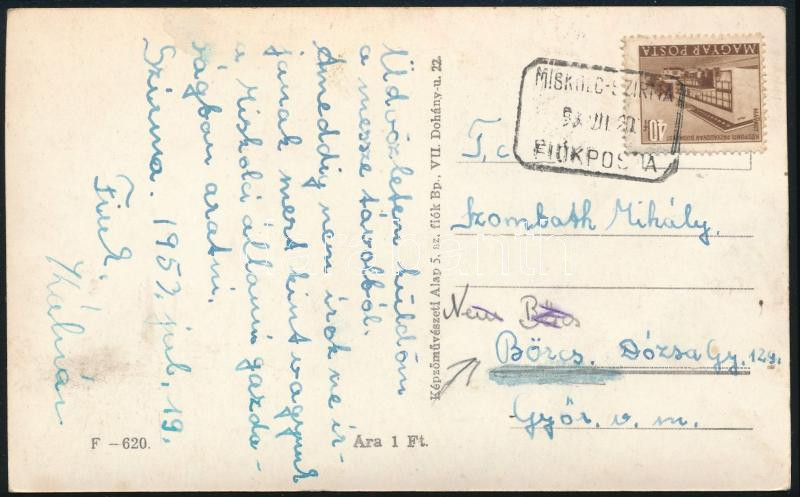 Üdvözletem küldöm
a messze távolból.
Ameddig nem írok ne ír-
janak mert kint vagyunk
a Miskolci állami gazda-
ságban aratni.
Szirma. 1953. júl. 19.
Kálmán
F -620.
Ára 1 Ft.
Képzőművészeti Alap 5. sz. fiók Bp., VII. Dohány-u. 22.
MAGYAR POSTA
40
MISKOLC-SZIRMA
FIÓKPOSTA
T, c
Szombath Mihály.
Nem Bács
Börcs. Dózsa Gy. 129.
Győr. v. m.